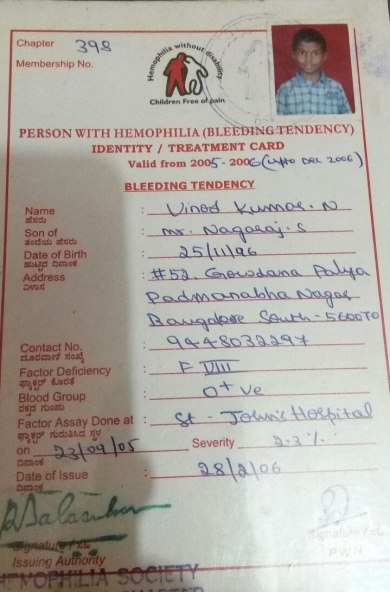 Chapter 398
Membership No.
Hemophilia without disability
Children Free of pain
PERSON WITH HEMOPHILIA (BLEEDING TENDENCY)
IDENTITY / TREATMENT CARD
Valid from 2005 - 2006 (upto Dec 2006)
BLEEDING TENDENCY
Name : Vinod Kumar. N
ಹೆಸರು
Son of : Mr. Nagaraj. S
ತಂದೆಯ ಹೆಸರು
Date of Birth : 25/11/96
ಹುಟ್ಟಿದ ದಿನಾಂಕ
Address : #52. Gowdana Palya
ವಿಳಾಸ
Padmanabha Nagar
Bangalore South - 560070
Contact No. : 9448032297
ದೂರವಾಣಿ ಸಂಖ್ಯೆ
Factor Deficiency : F VIII
ಫ್ಯಾಕ್ಟರ್ ಕೊರತೆ
Blood Group : O+ Ve
ರಕ್ತದ ಗುಂಪು
Factor Assay Done at : St - John's Hospital
ಫ್ಯಾಕ್ಟರ್ ಗುರುತಿಸಿದ ಸ್ಥಳ
on : 23/09/05 Severity 2-3%
ದಿನಾಂಕ
Date of Issue : 28/2/06
ದಿನಾಂಕ
Signature / ಸಹಿ
Issuing Authority
Signature
PWH
HEMOPHILIA SOCIETY
CHAPTER